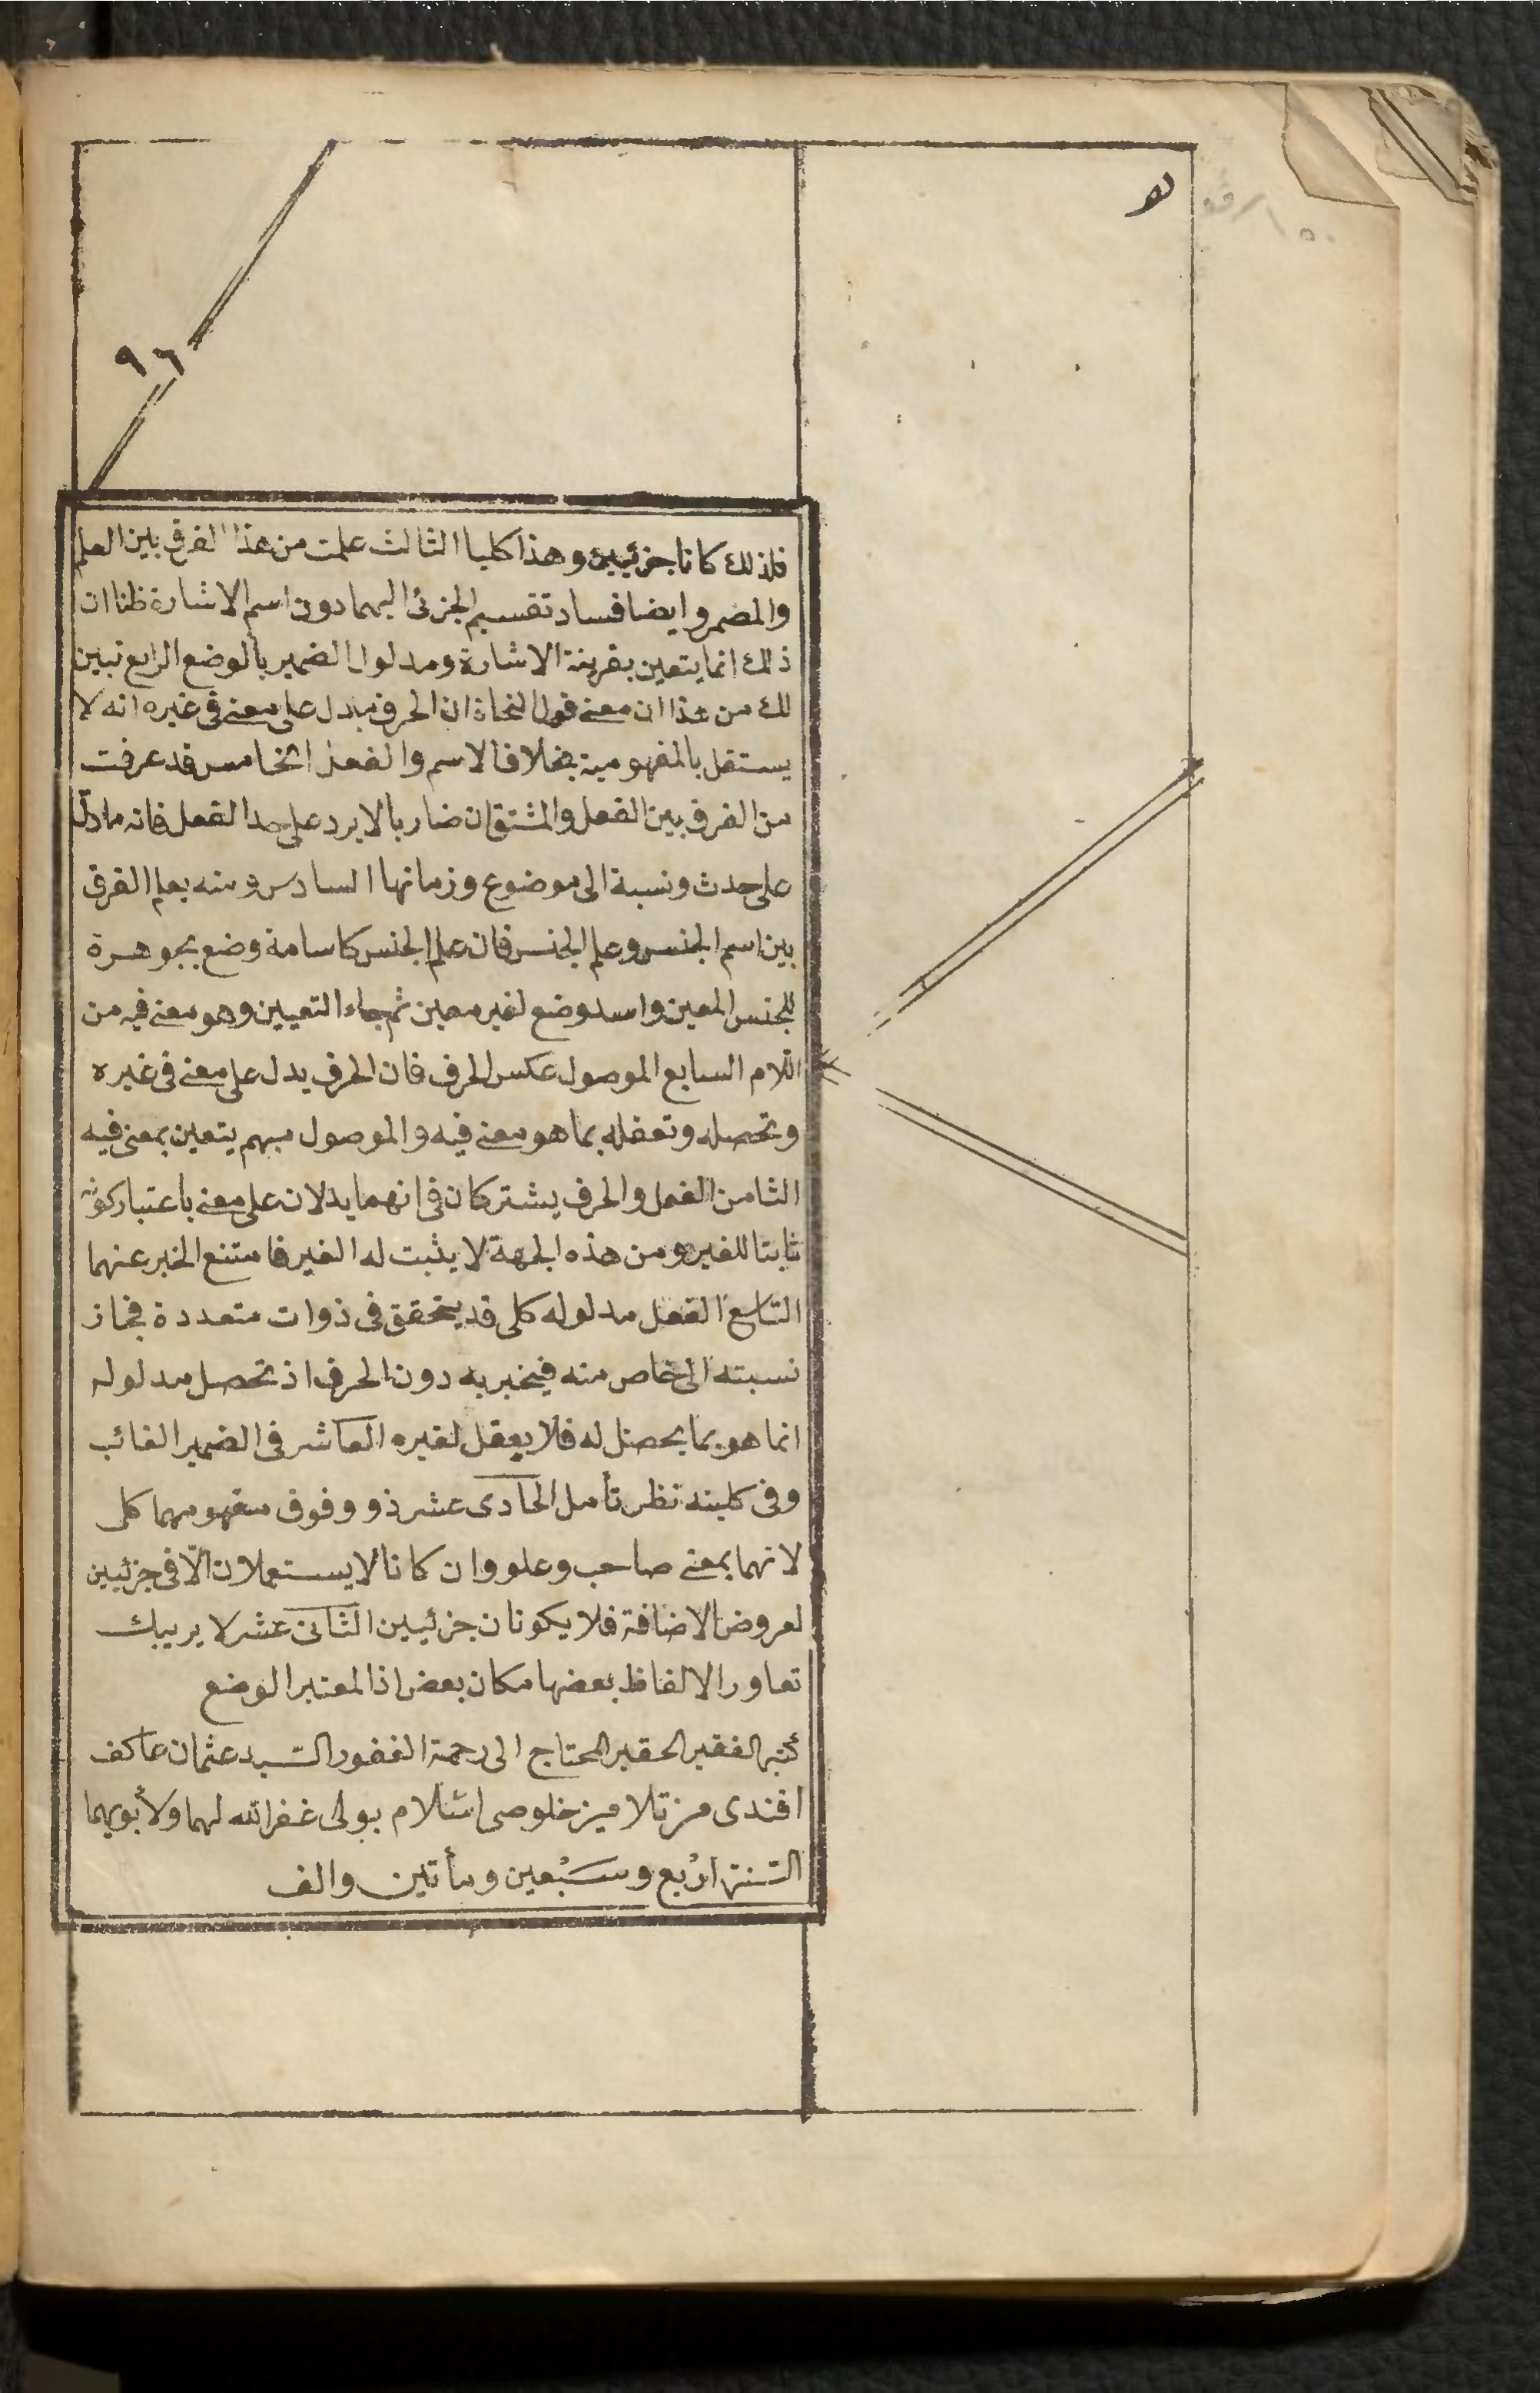 ٩٦
فلذلك كانا جزئيين وهذا كليا الثالث علمت من هذا الفرق بين العلم
والمضمر وايضا فساد تقسيم الجزئى اليهما دون اسم الاشارة ظنا ان
ذلك انما يتعين بقرينة الاشارة ومدلول الضمير بالوضع الرابع تبين
لك من هذا ان معنى قول النحاة ان الحرف يدل على معنى فى غيره انه لا
يستقل بالمفهومية بخلاف الاسم والفعل الخامس قد عرفت
من الفرق بين الفعل والمشتق ان ضاربا لا يرد على حد الفعل فانه ما دل
على حدث ونسبة الى موضوع وزمانها السادس ومنه يعلم الفرق
بين اسم الجنس وعلم الجنس فان علم الجنس كاسامة وضع بجوهرة
للجنس المعين واسد وضع لغير معين ثم جاء التعيين وهو معنى فيه من
اللام السابع الموصول عكس الحرف فان الحرف يدل على معنى فى غيره
وتحصله وتعقله بما هو معنى فيه والموصول مبهم يتعين بمعنى فيه
الثامن الفعل والحرف يشتركان فى انهما يدلان على معنى باعتبار كونه
ثابتا للغير ومن هذه الجهة لا يثبت له الغير فامتنع الخبر عنهما
التاسع الفعل مدلوله كلى قد يتحقق فى ذوات متعددة فجاز
نسبته الى خاص منه فيخبر به دون الحرف اذ تحصل مدلوله
انما هو بما يحصل له فلا يعقل لغيره العاشر فى الضمير الغائب
وفى كليته نظر تأمل الحادى عشر ذو وفوق مفهومهما كلى
لانهما بمعنى صاحب وعلو وان كانا لا يستعملان الّا فى جزئيين
لعروض الاضافة فلا يكونان جزئيين الثانى عشر لا يريبك
تعاور الالفاظ بعضها مكان بعض اذ المعتبر الوضع
كتبه الفقير الحقير المحتاج الى رحمة الغفور السّيد عثمان عاكف
افندى من تلاميز خلوصى اسلام بولى غفر الله لهما ولأبويهما
السّنته ارْبع وسَبْعين ومأتين والف